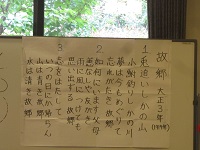 故郷 大正3年
1 兎追いしかの山
小鮒釣りしかの川
夢は今もめぐりて
忘れがたき故郷
2 如何にいます父母
恙なしや友がき
雨に風につけても
思い出ずる故郷
3 志をはたして
いつの日にか帰らん
山は青き故郷
水は清き故郷